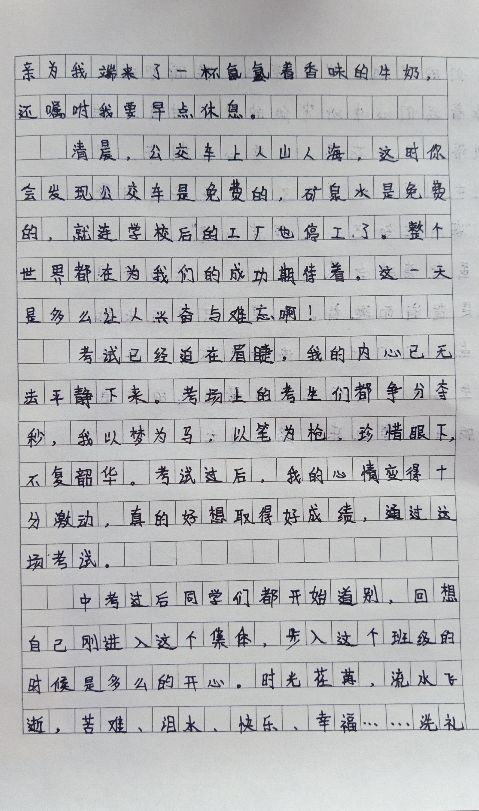 亲为我端来了一杯氤氲着香味的牛奶，
还嘱咐我要早点休息。
清晨，公交车上人山人海，这时你
会发现公交车是免费的，矿泉水是免费
的，就连学校后的工厂也停工了。整个
世界都在为我们的成功期待着。这一天
是多么让人兴奋与难忘啊！
考试已经迫在眉睫，我的内心已无
法平静下来。考场上的考生们都争分夺
秒，我以梦为马，以笔为枪，珍惜眼下，
不复韶华。考试过后，我的心情变得十
分激动，真的好想取得好成绩，通过这
场考试。
中考过后同学们都开始道别，回想
自己刚进入这个集体，步入这个班级的
时候是多么的开心。时光荏苒，流水飞
逝，苦难、泪水、快乐、幸福……洗礼